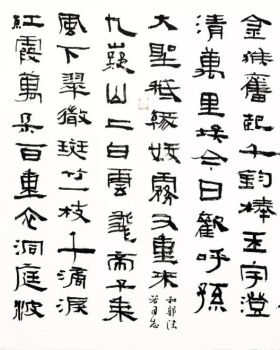 金猴奮起千鈞棒玉宇澄
清萬里埃今日歡呼孫
大聖祗緣妖霧又重來
和郭沫
若同志
九嶷山上白雲飛帝子乘
風下翠微斑竹一枝千滴淚
紅霞萬朵百重衣洞庭波